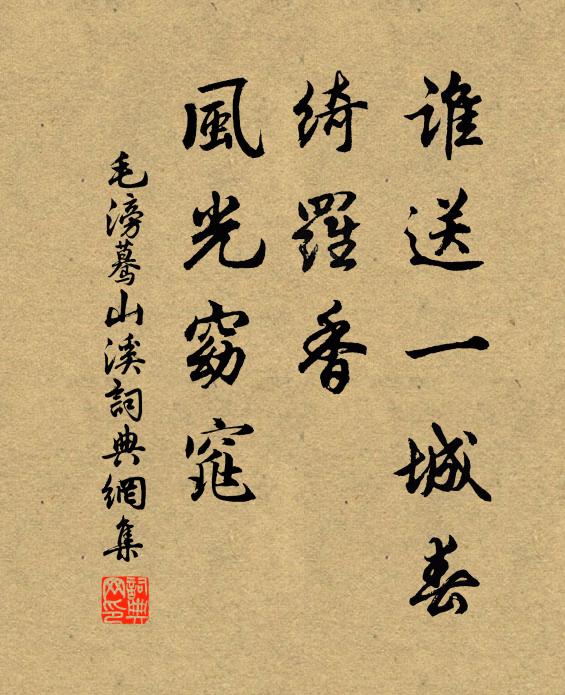 誰送一城春
綺羅香
風光窈窕
毛滂驀山溪詞典網集
詞典網印